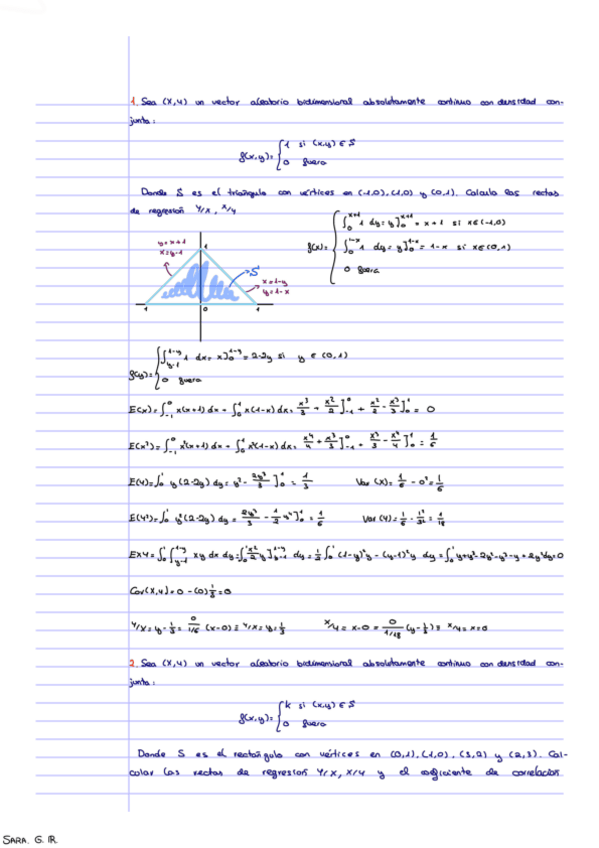 1. Sea (X,Y) un vector aleatorio bidimensional absolutamente continuo con densidad con-
junta:
f(x,y)= { 1 si (x,y) ∈ S
0 fuera
Donde S es el triángulo con vértices en (-1,0), (1,0) y (0,1). Calcula las rectas
de regresión Y/X, X/Y
f(x)= { ∫₀^{x+1} 1 dy = y]₀^{x+1} = x+1 si x∈(-1,0)
∫₀^{1-x} 1 dy = y]₀^{1-x} = 1-x si x∈(0,1)
0 fuera
y=x+1
x=y-1
1
S
x=1-y
y=1-x
1 0 1
f(y)= { ∫_{y-1}^{1-y} 1 dx = x]₀^{1-y} = 2-2y si y ∈ (0,1)
0 fuera
E(X)= ∫₋₁⁰ x(x+1) dx + ∫₀¹ x(1-x) dx = x³/3 + x²/2]₋₁⁰ + x²/2 - x³/3]₀¹ = 0
E(X²)= ∫₋₁⁰ x²(x+1) dx + ∫₀¹ x²(1-x) dx = x⁴/4 + x³/3]₋₁⁰ + x³/3 - x⁴/4]₀¹ = 1/6
E(Y)= ∫₀¹ y(2-2y) dy = y² - 2y³/3]₀¹ = 1/3 Var (X) = 1/6 - 0² = 1/6
E(Y²)= ∫₀¹ y²(2-2y) dy = 2y³/3 - 1/2 y⁴]₀¹ = 1/6 Var (Y) = 1/6 - 1²/3² = 1/18
EXY = ∫₀¹ ∫_{y-1}^{1-y} xy dx dy = ∫₀¹ x²/2 y]_{y-1}^{1-y} dy = 1/2 ∫₀¹ (1-y)²y - (y-1)²y dy = ∫₀¹ y+y³-2y²-y³-y+2y²dy=0
Cov(X,Y) = 0 - (0) 1/3 = 0
Y/X = y - 1/3 = 0/1/6 (x-0) ≡ Y/X = y = 1/3 X/Y = x-0 = 0/1/18 (y - 1/3) ≡ X/Y = x=0
2. Sea (X,Y) un vector aleatorio bidimensional absolutamente continuo con densidad con-
junta:
f(x,y)= { k si (x,y) ∈ S
0 fuera
Donde S es el rectángulo con vértices en (0,1), (1,0), (3,2) y (2,3). Cal-
cular las rectas de regresión Y/X, X/Y y el coeficiente de correlación
SARA. G. R.